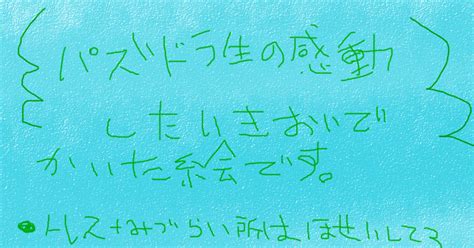 パズドラ生の感動
したいきおいで
かいた絵です。
●トレス+みづらい所はほせいしてマ